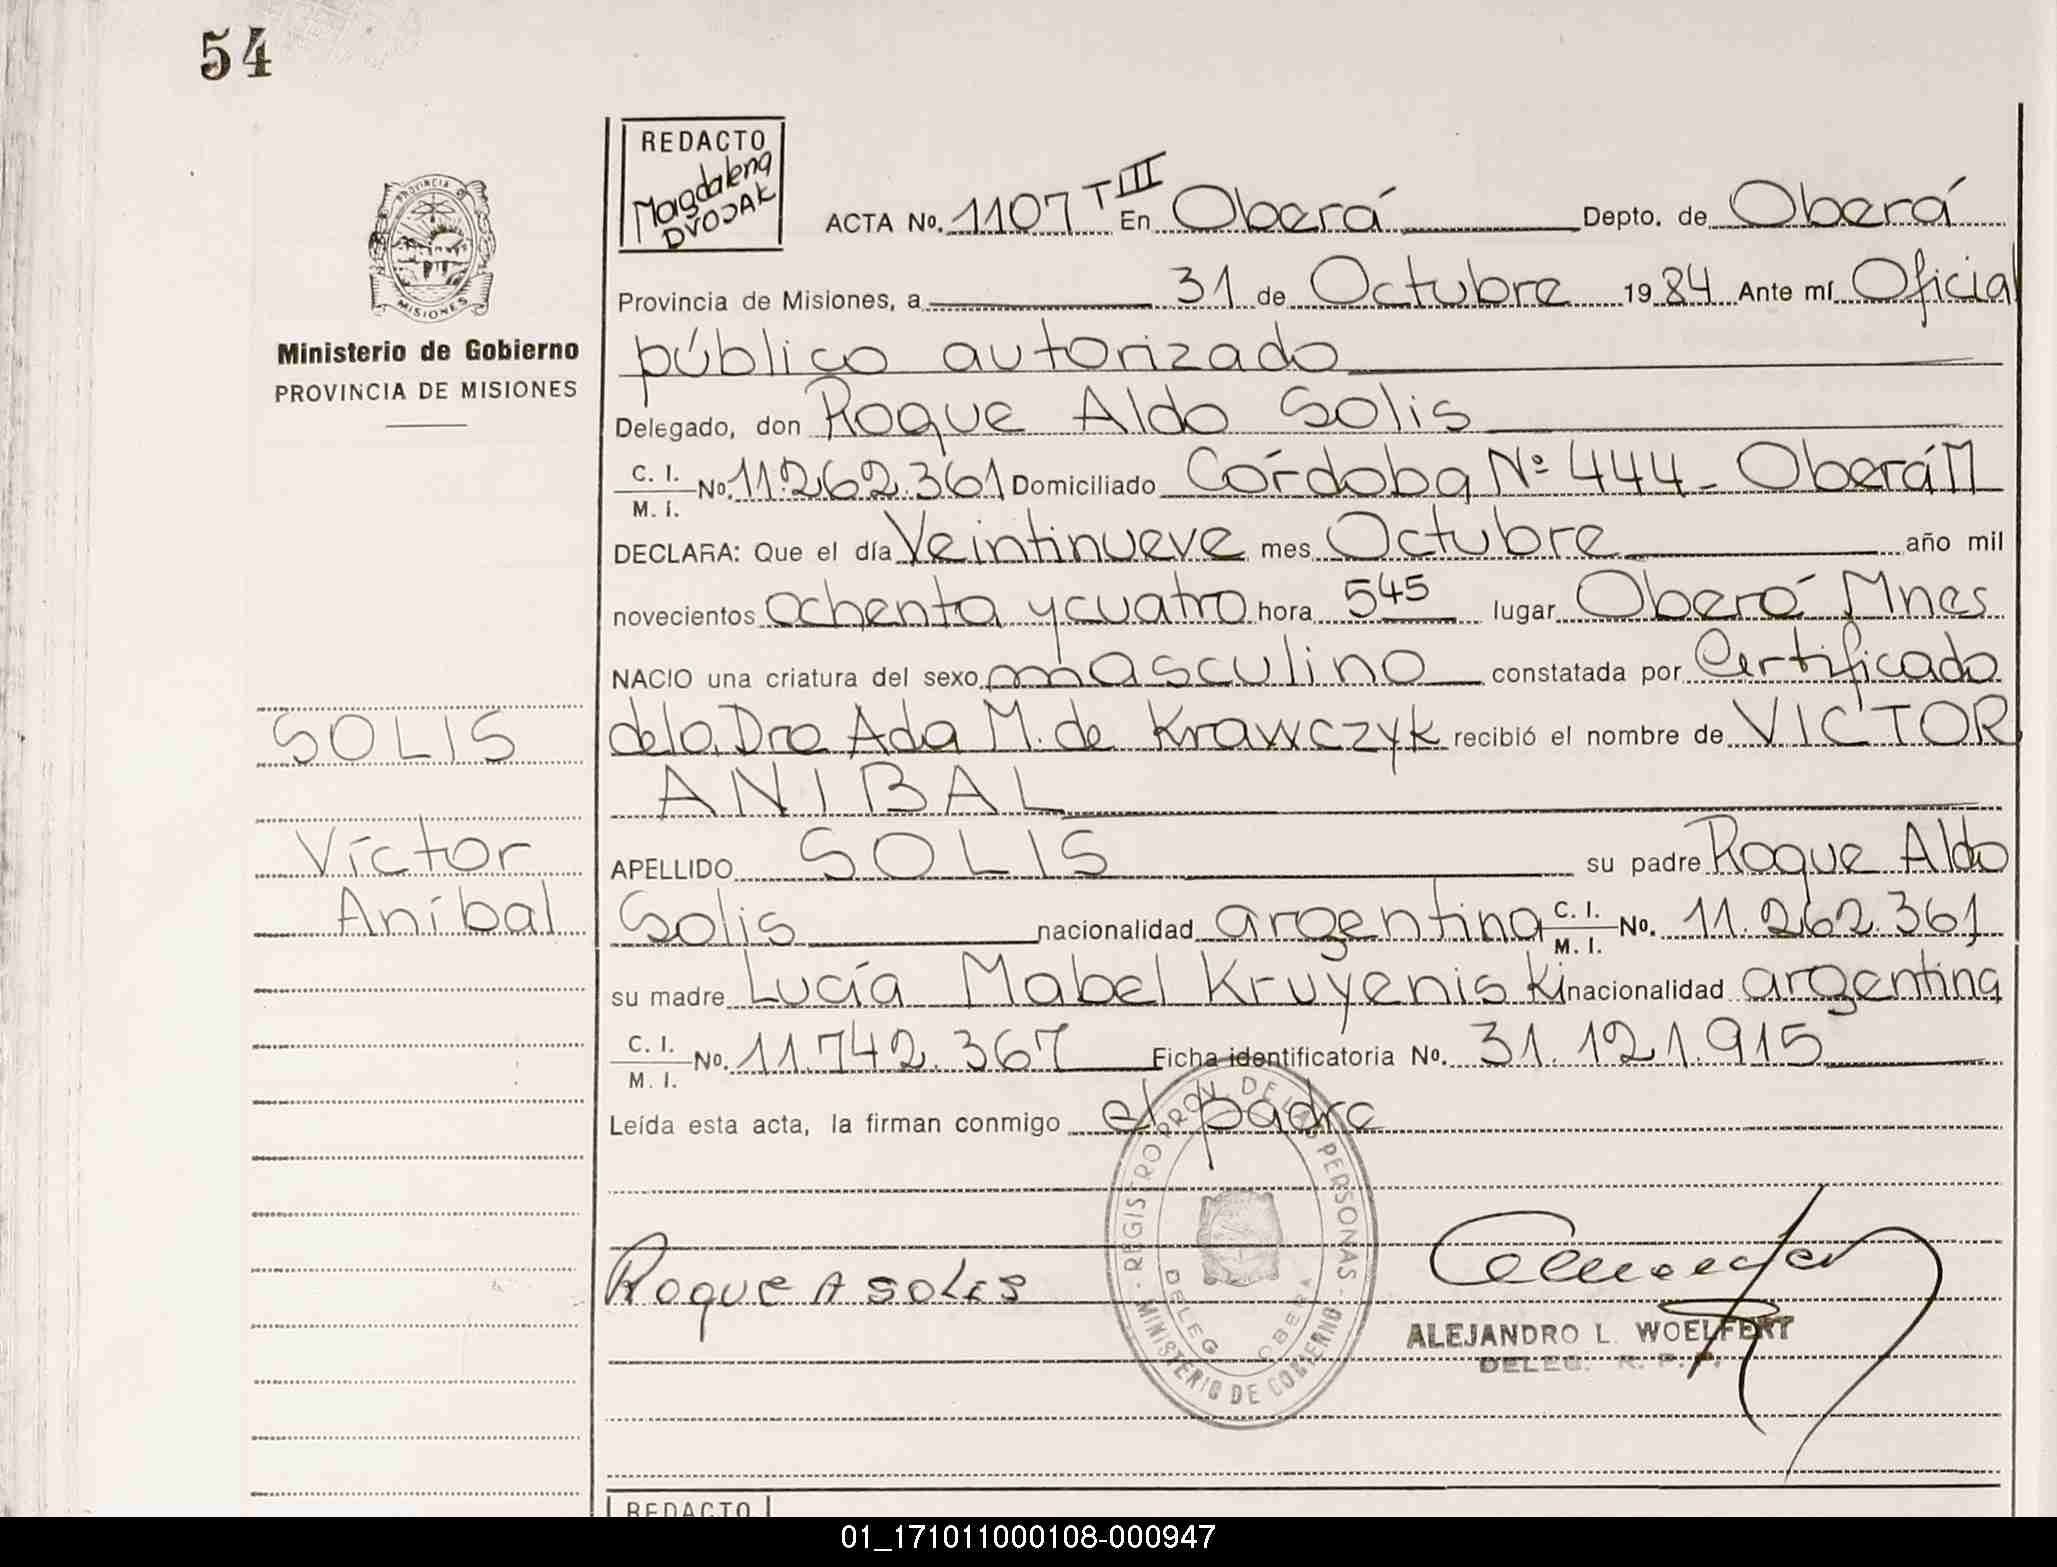 54
PROVINCIA DE
MISIONES
Ministerio de Gobierno
PROVINCIA DE MISIONES
SOLIS
Víctor
Aníbal
REDACTO
Magdalena
DVOJAK
ACTA No. 1107 T III En Oberá Depto. de Oberá
Provincia de Misiones, a 31 de Octubre 1984 Ante mí Oficial
público autorizado
Delegado, don Roque Aldo Solis
C. I. / M. I. No. 11.262.361 Domiciliado Córdoba Nº 444 - Oberá M
DECLARA: Que el día Veintinueve mes Octubre año mil
novecientos ochenta y cuatro hora 5 45 lugar Oberá Mnes
NACIO una criatura del sexo masculino constatada por Certificado
de la Dra Ada M. de Krawczyk recibió el nombre de VICTOR
ANIBAL
APELLIDO SOLIS su padre Roque Aldo
Solis nacionalidad argentina C. I. / M. I. No. 11.262.361
su madre Lucía Mabel Kruyeniski nacionalidad argentina
C. I. / M. I. No. 11.742.367 Ficha identificatoria No. 31.121.915
Leída esta acta, la firman conmigo el padre
REGISTRO PROV. DE LAS PERSONAS - MINISTERIO DE GOBIERNO
DELEG OBERA
Roque A SOLIS
ALEJANDRO L. WOELFERT
DELEG. R. P. P.
REDACTO
01_171011000108-000947